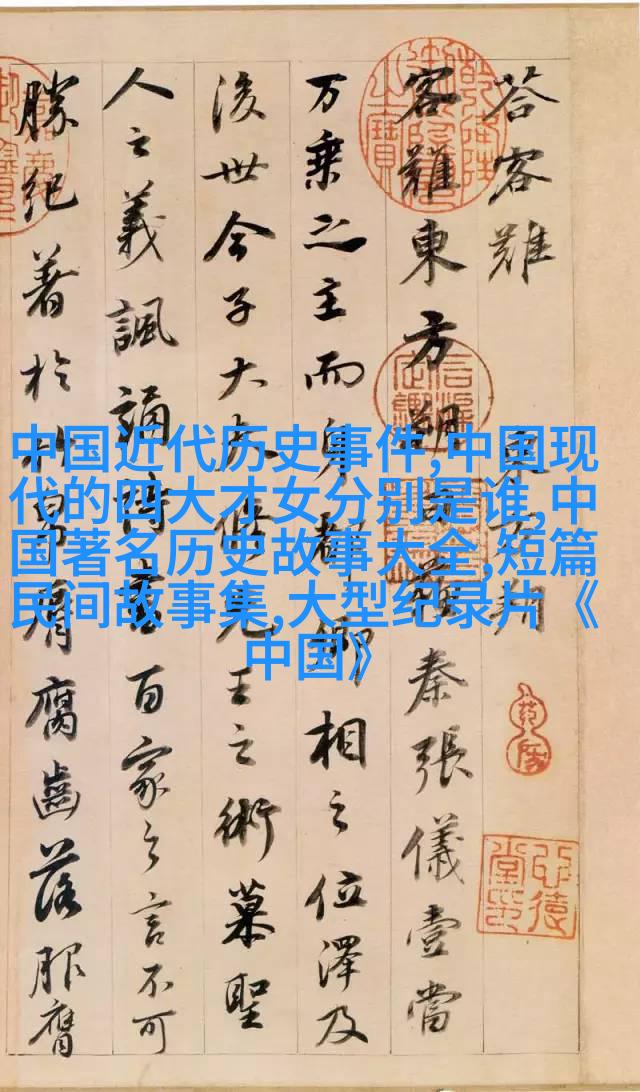 荅客難 東方朔
客難東方朔曰蘇秦張儀壹當
万乗之主而身都卿相之位澤及
後世今子大夫脩先王之術慕聖
人之義諷誦詩書百家之言不可
勝紀著於竹帛脣腐齒落服膺
中国近代历史事件,中国现
代的四大才女分别是谁,中
国著名历史故事大全,短篇
民间故事集,大型纪录片《
中国》